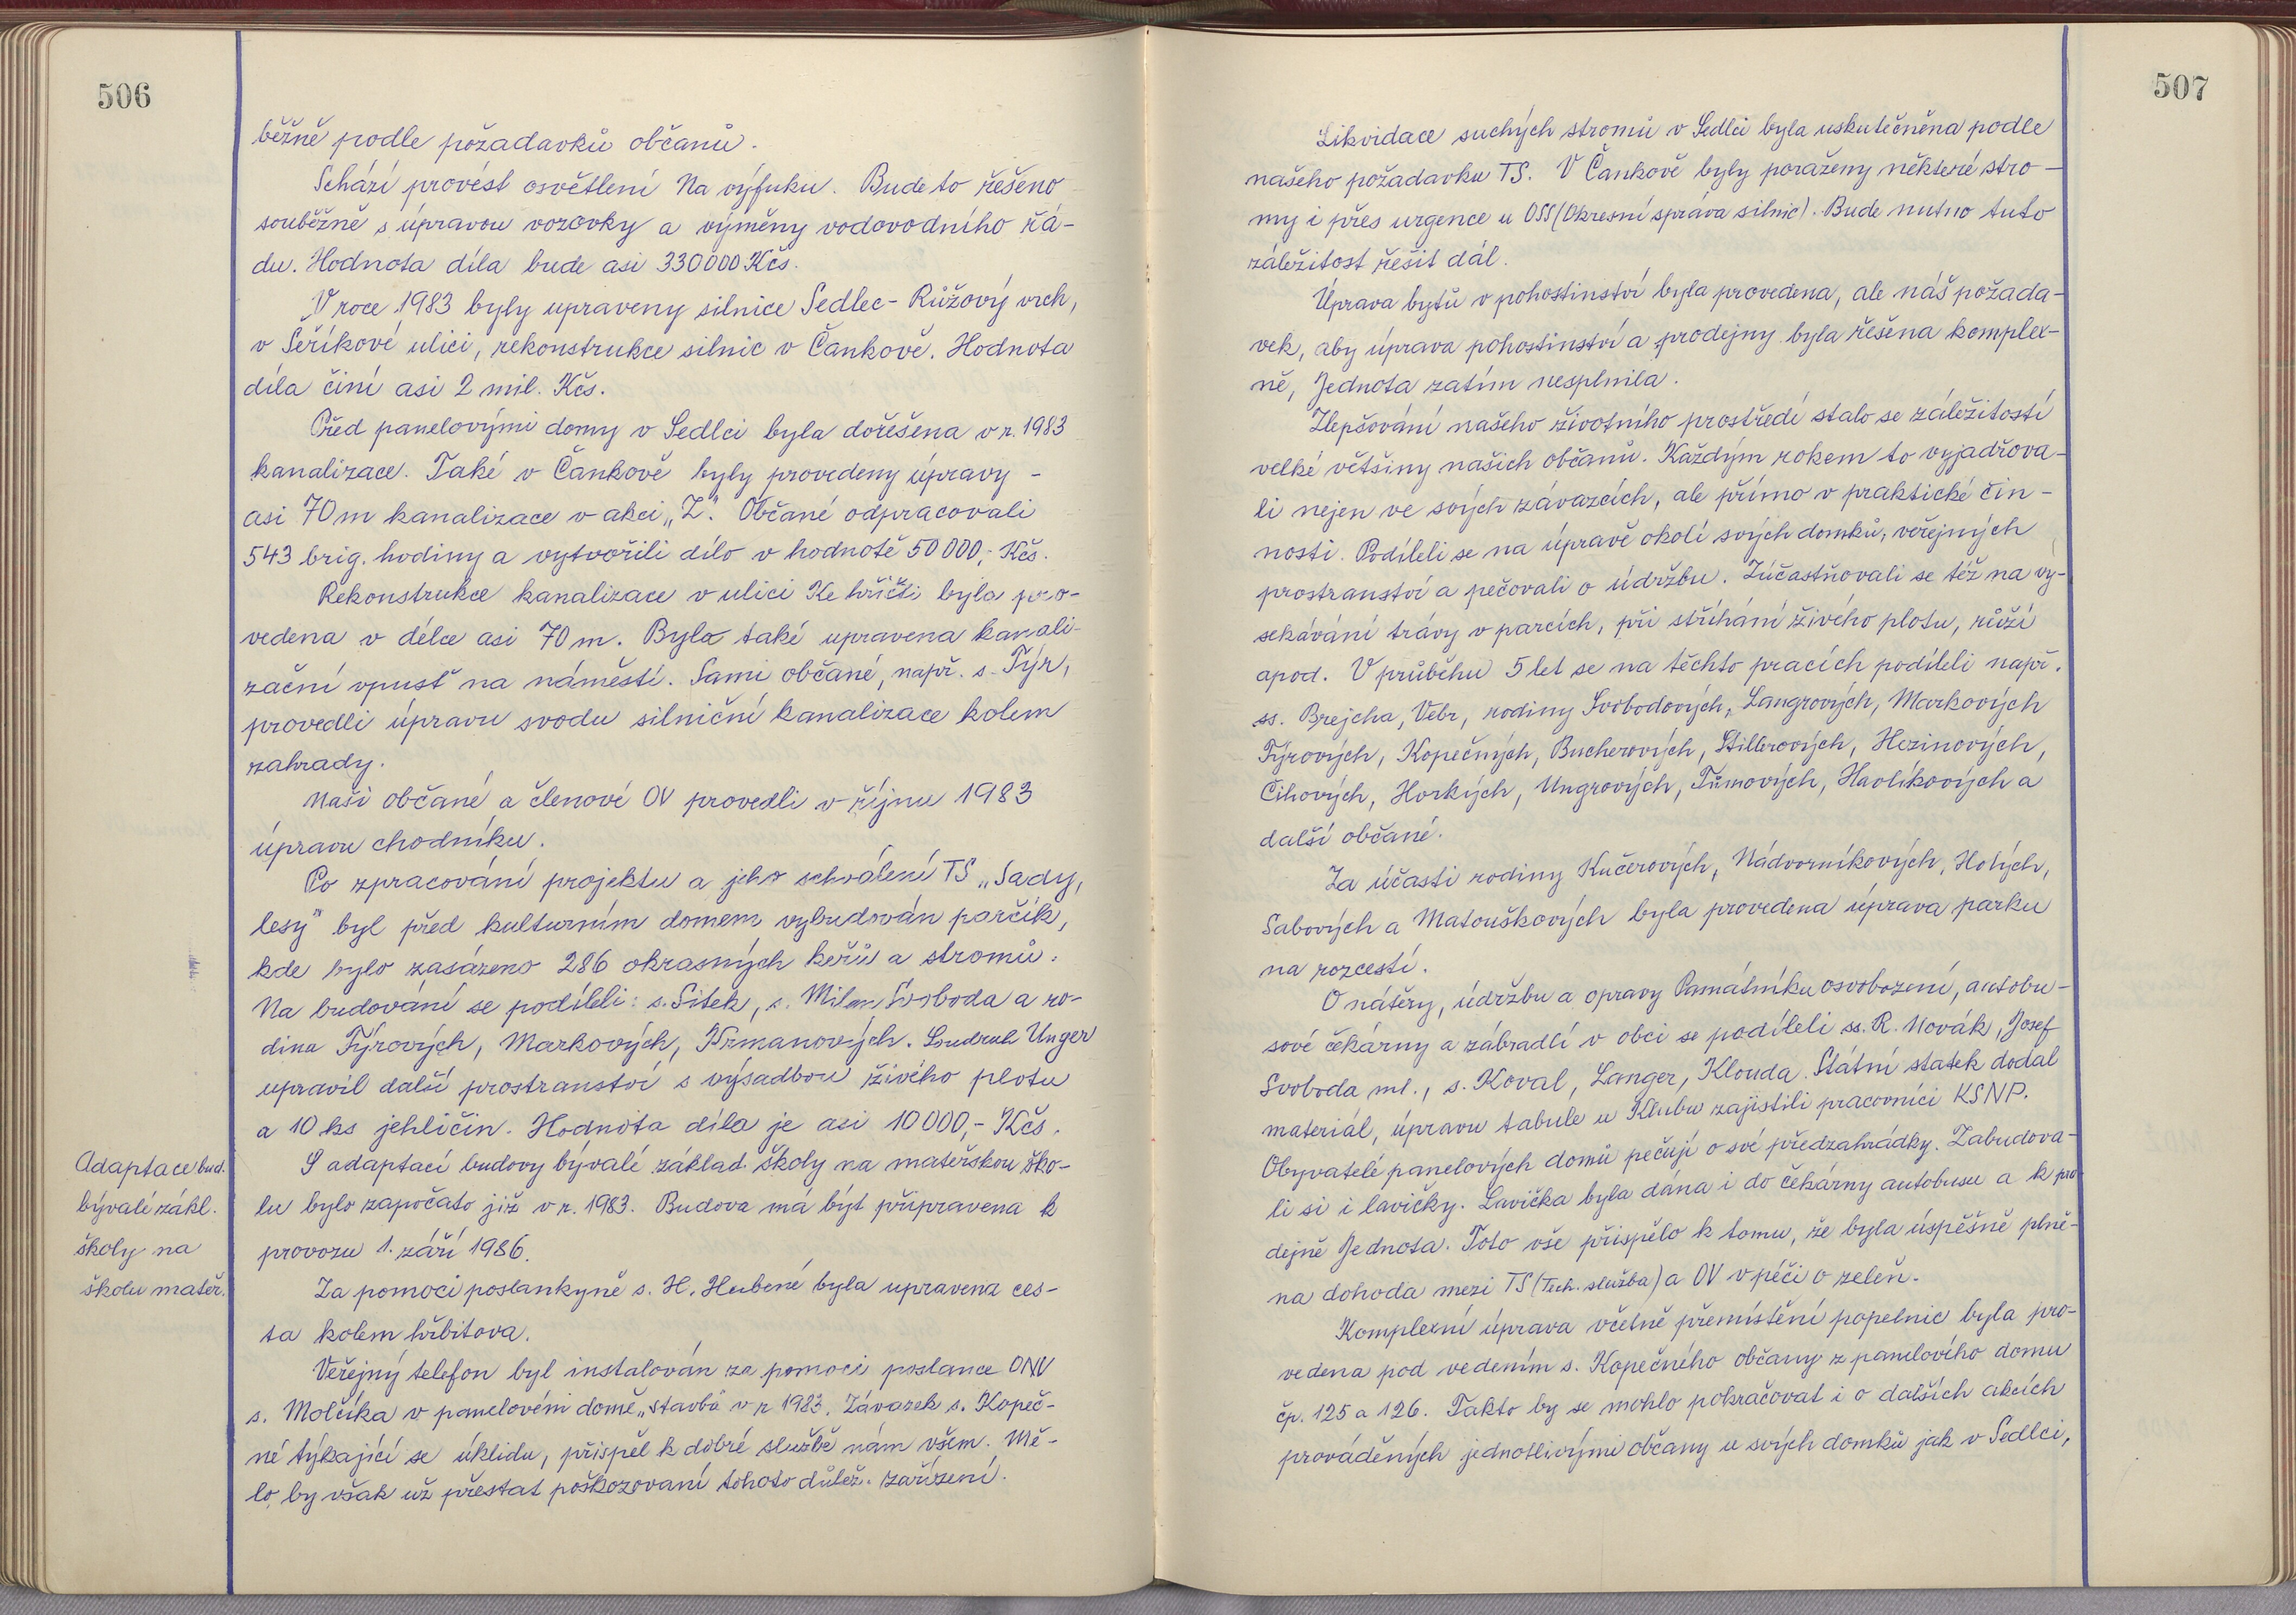 506
běžně podle požadavků občanů.
Schází provést osvětlení Na výfuku. Bude to řešeno
souběžně s úpravou vozovky a výměny vodovodního řá-
du. Hodnota díla bude asi 330000 Kčs.
V roce 1983 byly upraveny silnice Sedlec - Růžový vrch,
v Šeříkové ulici, rekonstrukce silnic v Čankově. Hodnota
díla činí asi 2 mil. Kčs.
Před panelovými domy v Sedlci byla dořešena v r. 1983
kanalizace. Také v Čankově byly provedeny úpravy -
asi 70 m kanalizace v akci „Z". Občané odpracovali
543 brig. hodiny a vytvořili dílo v hodnotě 50 000,- Kčs.
Rekonstrukce kanalizace v ulici Ke hřišti byla pro-
vedena v délce asi 70 m. Byla také upravena kanali-
zační vpusť na náměstí. Sami občané, např. s. Týr,
provedli úpravu svodu silniční kanalizace kolem
zahrady.
Naši občané a členové OV provedli v říjnu 1983
úpravu chodníku.
Po zpracování projektu a jeho schválení TS „Sady,
lesy" byl před kulturním domem vybudován parčík,
kde bylo zasázeno 286 okrasných keřů a stromů.
Na budování se podíleli: s. Sitek, s. Milan Svoboda a ro-
dina Týrových, Markových, Krmanových. Soudruh Unger
upravil další prostranství s výsadbou živého plotu
a 10 ks jehličin. Hodnota díla je asi 10 000,- Kčs.
Adaptace bud.
bývalé zákl.
školy na
školu mateř.
S adaptací budovy bývalé základ. školy na mateřskou ško-
lu bylo započato již v r. 1983. Budova má být připravena k
provozu 1. září 1986.
Za pomoci poslankyně s. H. Hubené byla upravena ces-
ta kolem hřbitova.
Veřejný telefon byl instalován za pomoci poslance ONV
s. Molčíka v panelovém domě „stavbě" v r 1983. Závazek s. Kopeč-
né týkající se úklidu, přispěl k dobré službě nám všem. Mě-
lo by však už přestat poškozovaní tohoto důlež. zařízení.
507
Likvidace suchých stromů v Sedlci byla uskutečněna podle
našeho požadavku TS. V Čankově byly poraženy některé stro-
my i přes urgence u OSS (Okresní správa silnic). Bude nutno tuto
záležitost řešit dál.
Úprava bytů v pohostinství byla provedena, ale náš požada-
vek, aby úprava pohostinství a prodejny byla řešena komplex-
ně, Jednota zatím nesplnila.
Zlepšování našeho životního prostředí stalo se záležitostí
velké většiny našich občanů. Každým rokem to vyjadřova-
li nejen ve svých závazcích, ale přímo v praktické čin-
nosti. Podíleli se na úpravě okolí svých domků, veřejných
prostranství a pečovali o údržbu. Zúčastňovali se též na vy-
sekávání trávy v parcích, při stříhání živého plotu, růží
apod. V průběhu 5 let se na těchto pracích podíleli např.
ss. Brejcha, Vébr, rodiny Svobodových, Langrových, Markových
Týrových, Kopečných, Bucherových, Stillerových, Hezinových,
Čihových, Horkých, Ungrových, Tůmových, Havlíkových a
další občané.
Za účasti rodiny Kučerových, Nádvorníkových, Holých,
Sabových a Matouškových byla provedena úprava parku
na rozcestí.
O nátěry, údržbu a opravy Památníku osvobození, autobu-
sové čekárny a zábradlí v obci se podíleli ss. R. Novák, Josef
Svoboda ml., s. Koval, Langer, Klouda. Státní statek dodal
materiál, úpravu tabule u Klubu zajistili pracovníci KSNP.
Obyvatelé panelových domů pečují o své předzahrádky. Zabudova-
li si i lavičky. Lavička byla dána i do čekárny autobusu a k pro-
dejně Jednota. Toto vše přispělo k tomu, že byla úspěšně plně-
na dohoda mezi TS (Tech. služba) a OV v péči o zeleň.
Komplexní úprava včetně přemístění popelnic byla pro-
vedena pod vedením s. Kopečného občany z panelového domu
čp. 125 a 126. Takto by se mohlo pokračovat i o dalších akcích
prováděných jednotlivými občany u svých domků jak v Sedlci,